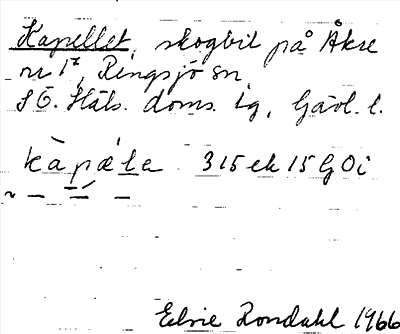 Kapellet, skogbit på Åkre
nr 1², Ringsjö sn
SÖ. Häls. doms. tg, Gävl. l.
kapäla 315 ek 15 G Ö i
Elsie Rondahl 1966